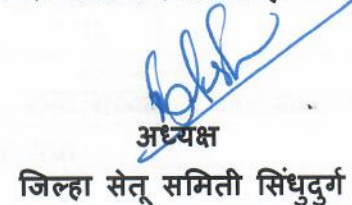 अध्यक्ष
जिल्हा सेतू समिती सिंधुदुर्ग